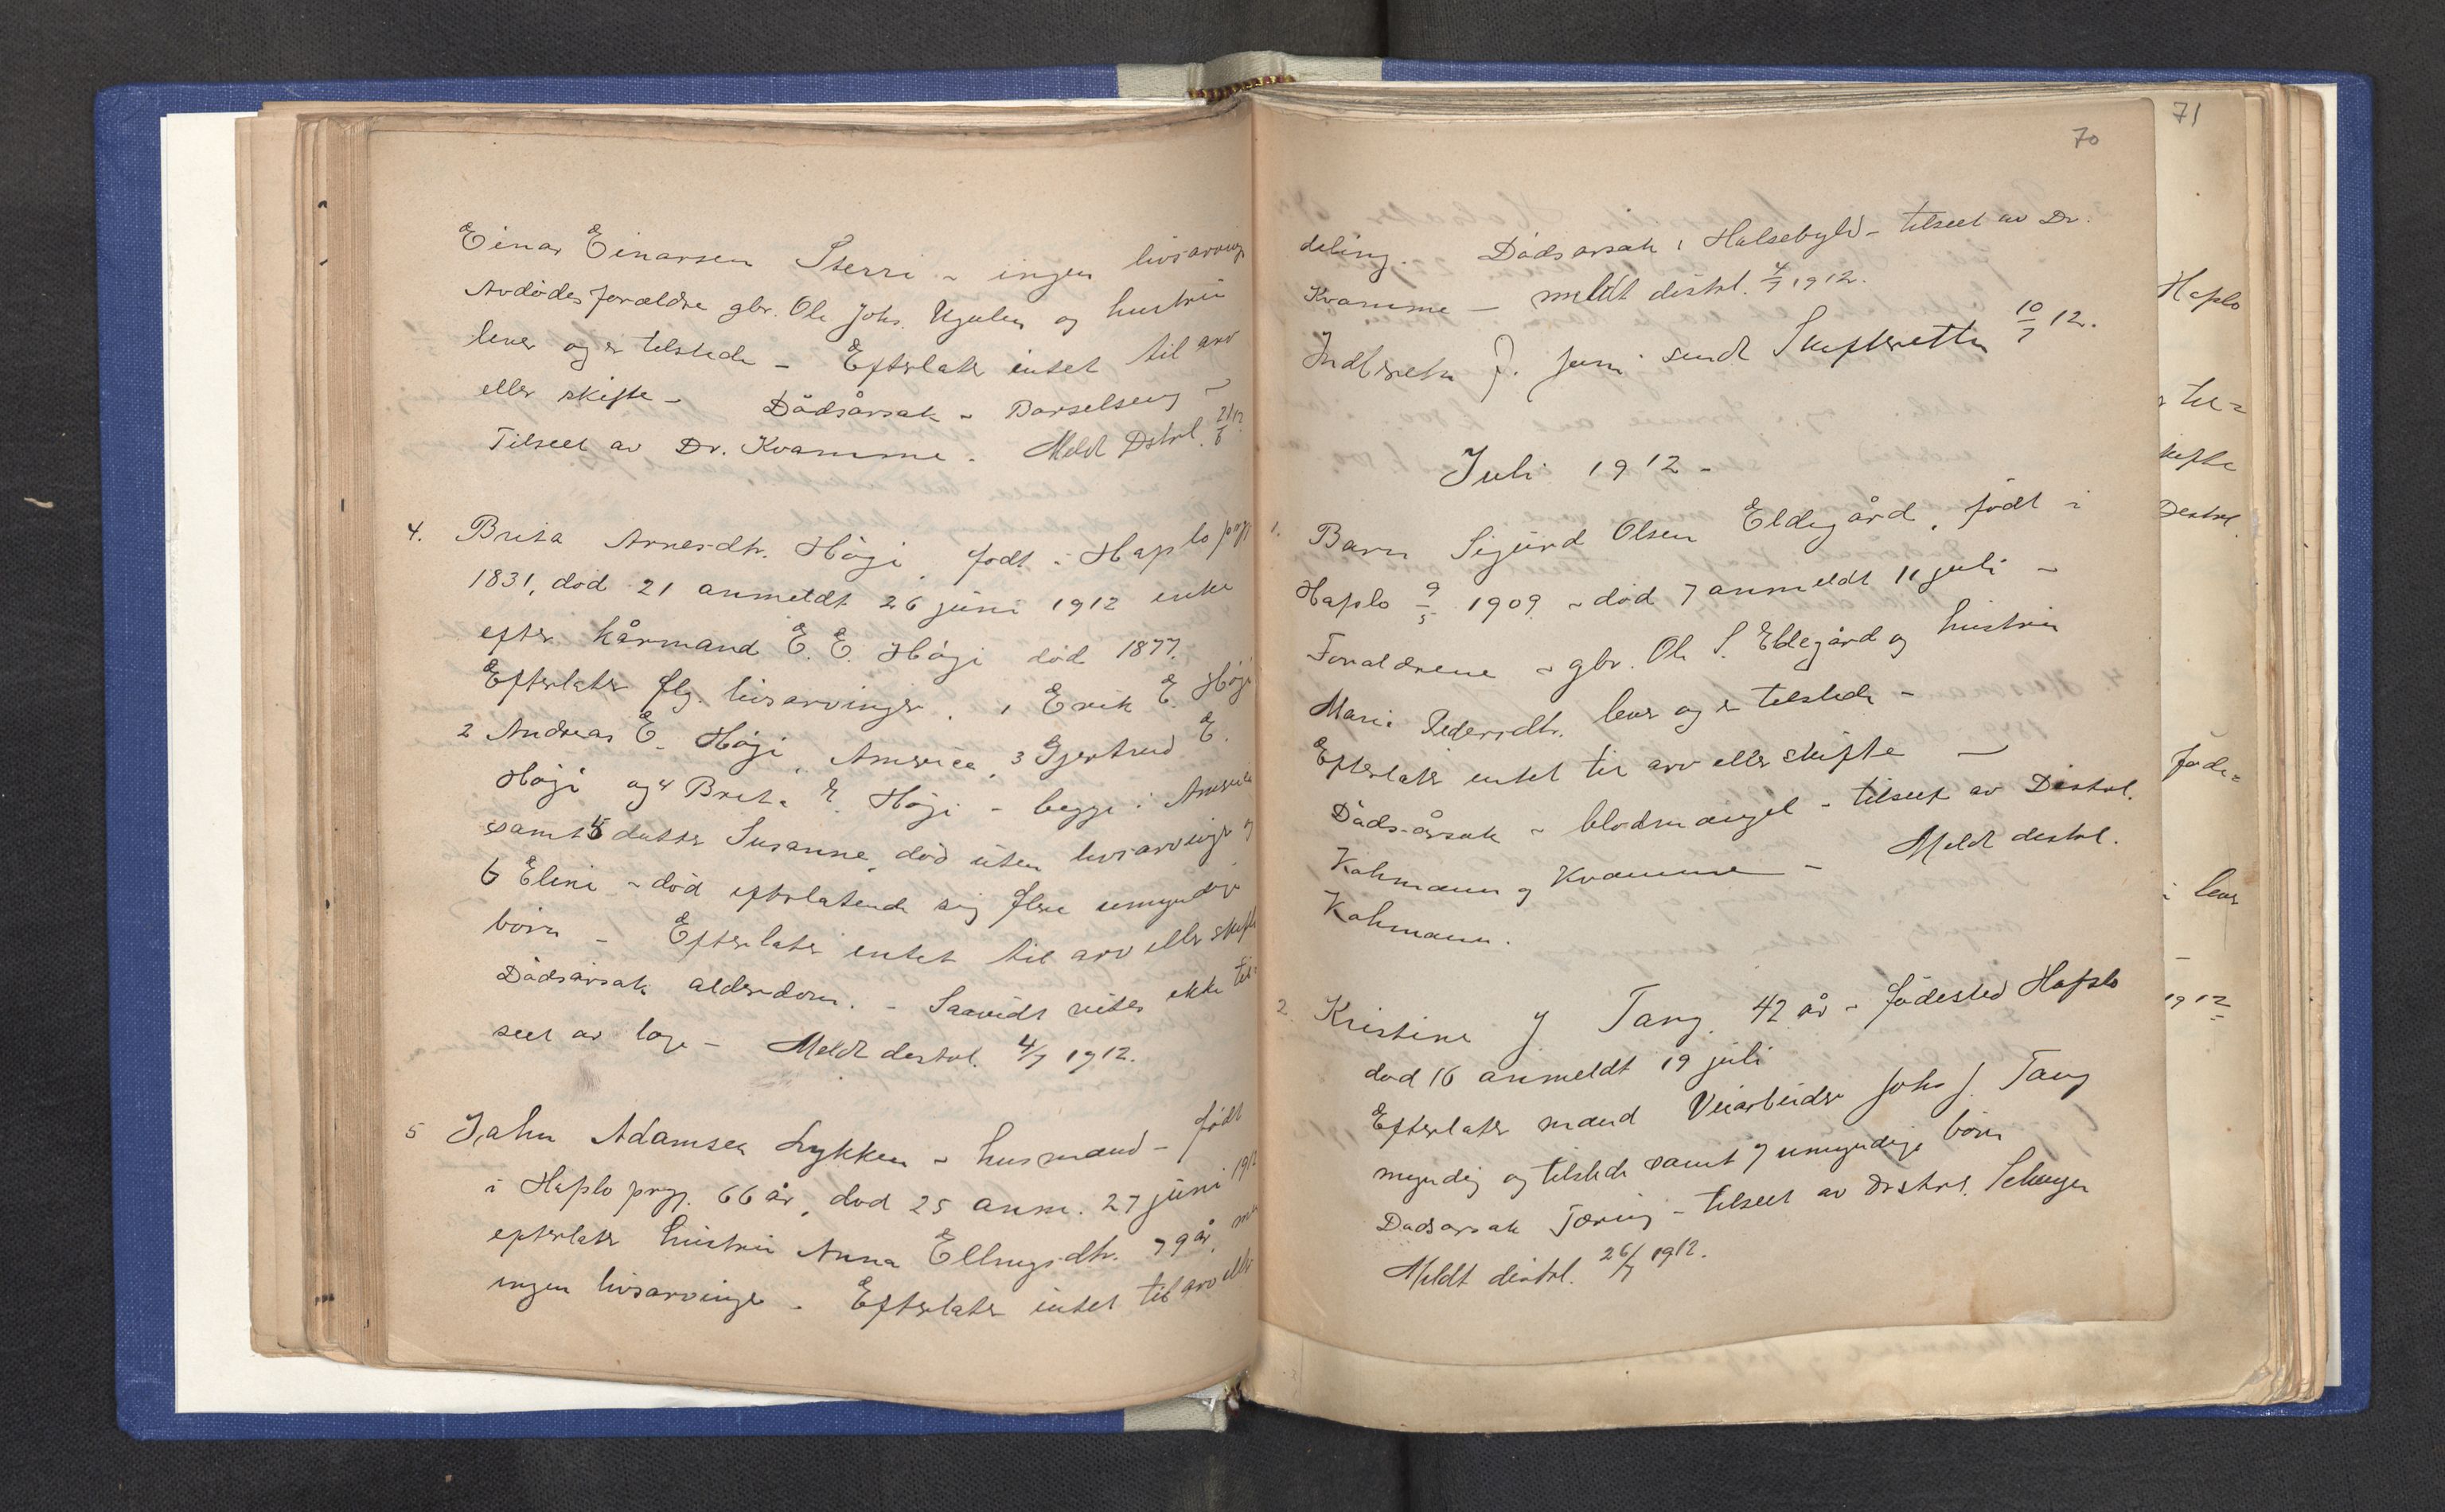 Einar Einarsen Sterri - ingen livsarving
Avdödes forældre gbr. Ole Johs. Ugulen og hustru
lever og er tilstede - Efterlater intet til arv
eller skifte - Dödsårsak - Barselseng -
Tilseet av Dr. Kvamme. Meldt Dstrl. 21/6 12
4. Brita Arnesdtr. Högi, födt i Hafslo prgj.
1831, död 21 anmeldt 26 juni 1912 enke
efter kårmand E. E. Högi död 1877.
Efterlater flg. livsarvinger. 1 Erik E. Högi
2 Andreas E. Högi, America, 3 Gjertrud E.
Högi og 4 Brita E. Högi - begge i America
samt 5 datter Susanne, död uten livsarvinger og
6 Eline - död efterlatende sig flere umyndige
börn - Efterlater intet til arv eller skifte
Dödsårsak alderdom. - Saavidt vites ikke til-
seet av læge - Meldt distrl. 4/7 1912.
5 Johan Adamsen Lykken - husmand - födt
i Hafslo prgj. 66 år, död 25 anm. 27 juni 1912
efterlater hustru Anna Ellingsdtr. 79 år,
ingen livsarvinge. Efterlater intet til arv eller
70
deling. Dödsårsak, Halsebyld - tilseet av Dr.
Kvamme - meldt distrl. 4/7 1912.
Indberetn f. juni sendt Skifteretten 10/7 12.
Juli 1912 -
1. Barn Sigurd Olsen Eldegård, födt i
Hafslo 9/5 1909 - död 7 anmeldt 11 juli -
Forældrene - gbr. Ole S. Eldegård og hustru
Marie Pedersdtr. lever og er tilstede -
Efterlater intet til arv eller skifte -
Döds-årsak - blodmangel - tilseet av Distrl.
Kahmann og Kvamme - Meldt distrl.
Kahmann.
2. Kristine J Tang. 42 år - födested Hafslo
död 16 anmeldt 19 juli
Efterlater mand Veiarbeider Johs J. Tang
myndig og tilstede samt 7 umyndige börn
Dödsarsak Tæring - tilseet av Distrl.
Meldt distrl. 26/7 1912.
71
Hafslo
til-
skifte
Distrl.
föde-
i lever
1912